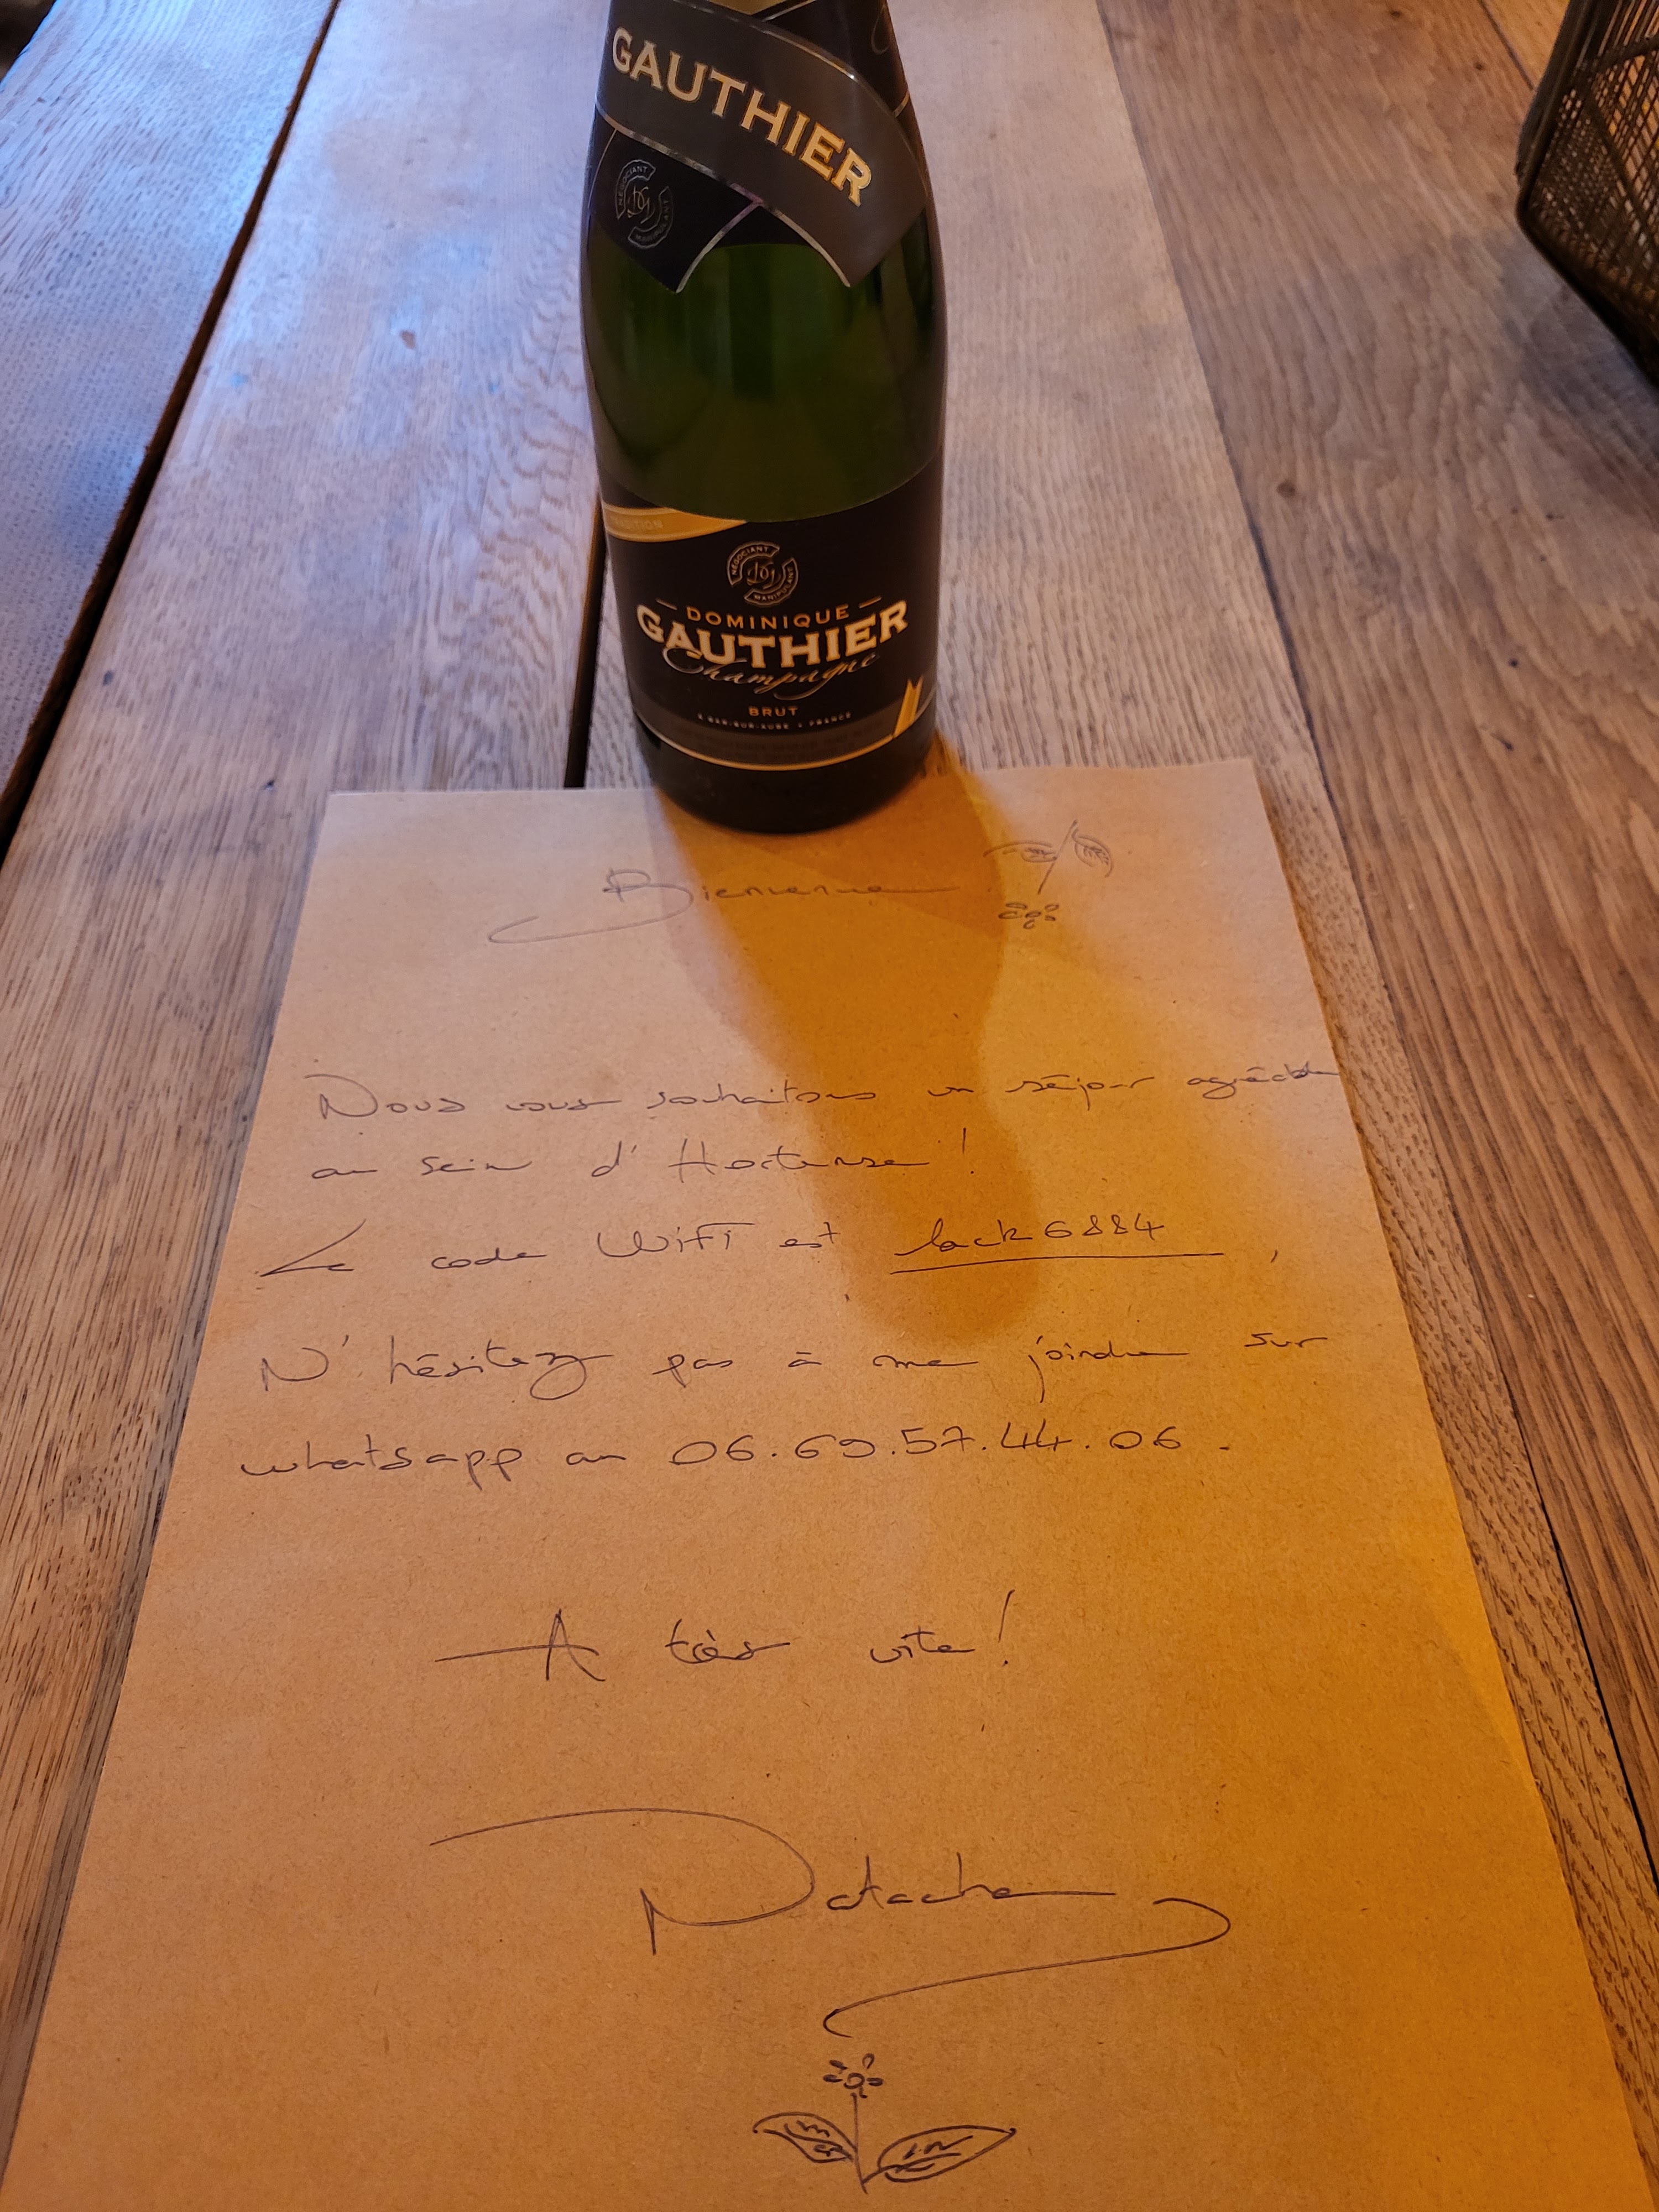 GAUTHIER
NÉGOCIANT
MANIPULANT
TRADITION
NÉGOCIANT
MANIPULANT
DOMINIQUE
GAUTHIER
Champagne
BRUT
À BAR-SUR-AUBE • FRANCE
Bienvenue
Nous vous souhaitons un séjour agréable
au sein d'Hortense !
Le code WiFi est lack6884,
N'hésitez pas à me joindre sur
whatsapp au 06.69.57.44.06.
A très vite !
Natacha